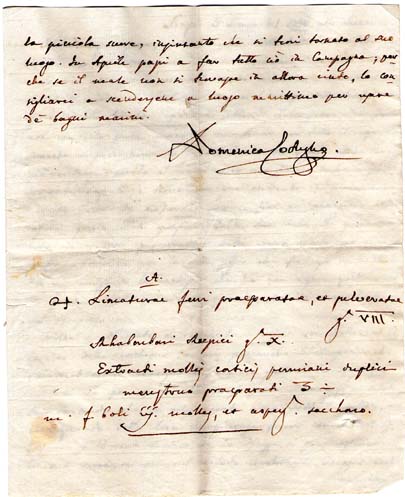 la piccola scere, infintanto che si terrà tornata al suo
luogo. In Aprile passi a far tutto ciò in Campagna; per
che se il male non si trovasse in allora vinto, lo con
sigliarei a scendersene a luogo marittimo per usare
de bagni marini.
Domenico
A.
Limaturae ferri praeparatae, et pulveratae
g.r VIII.
Rhabarbari g.r X.
Extracti mollis corticis peruviani duplici
menstruo praeparati
m. f. boli molles, et asperg. saccharo.